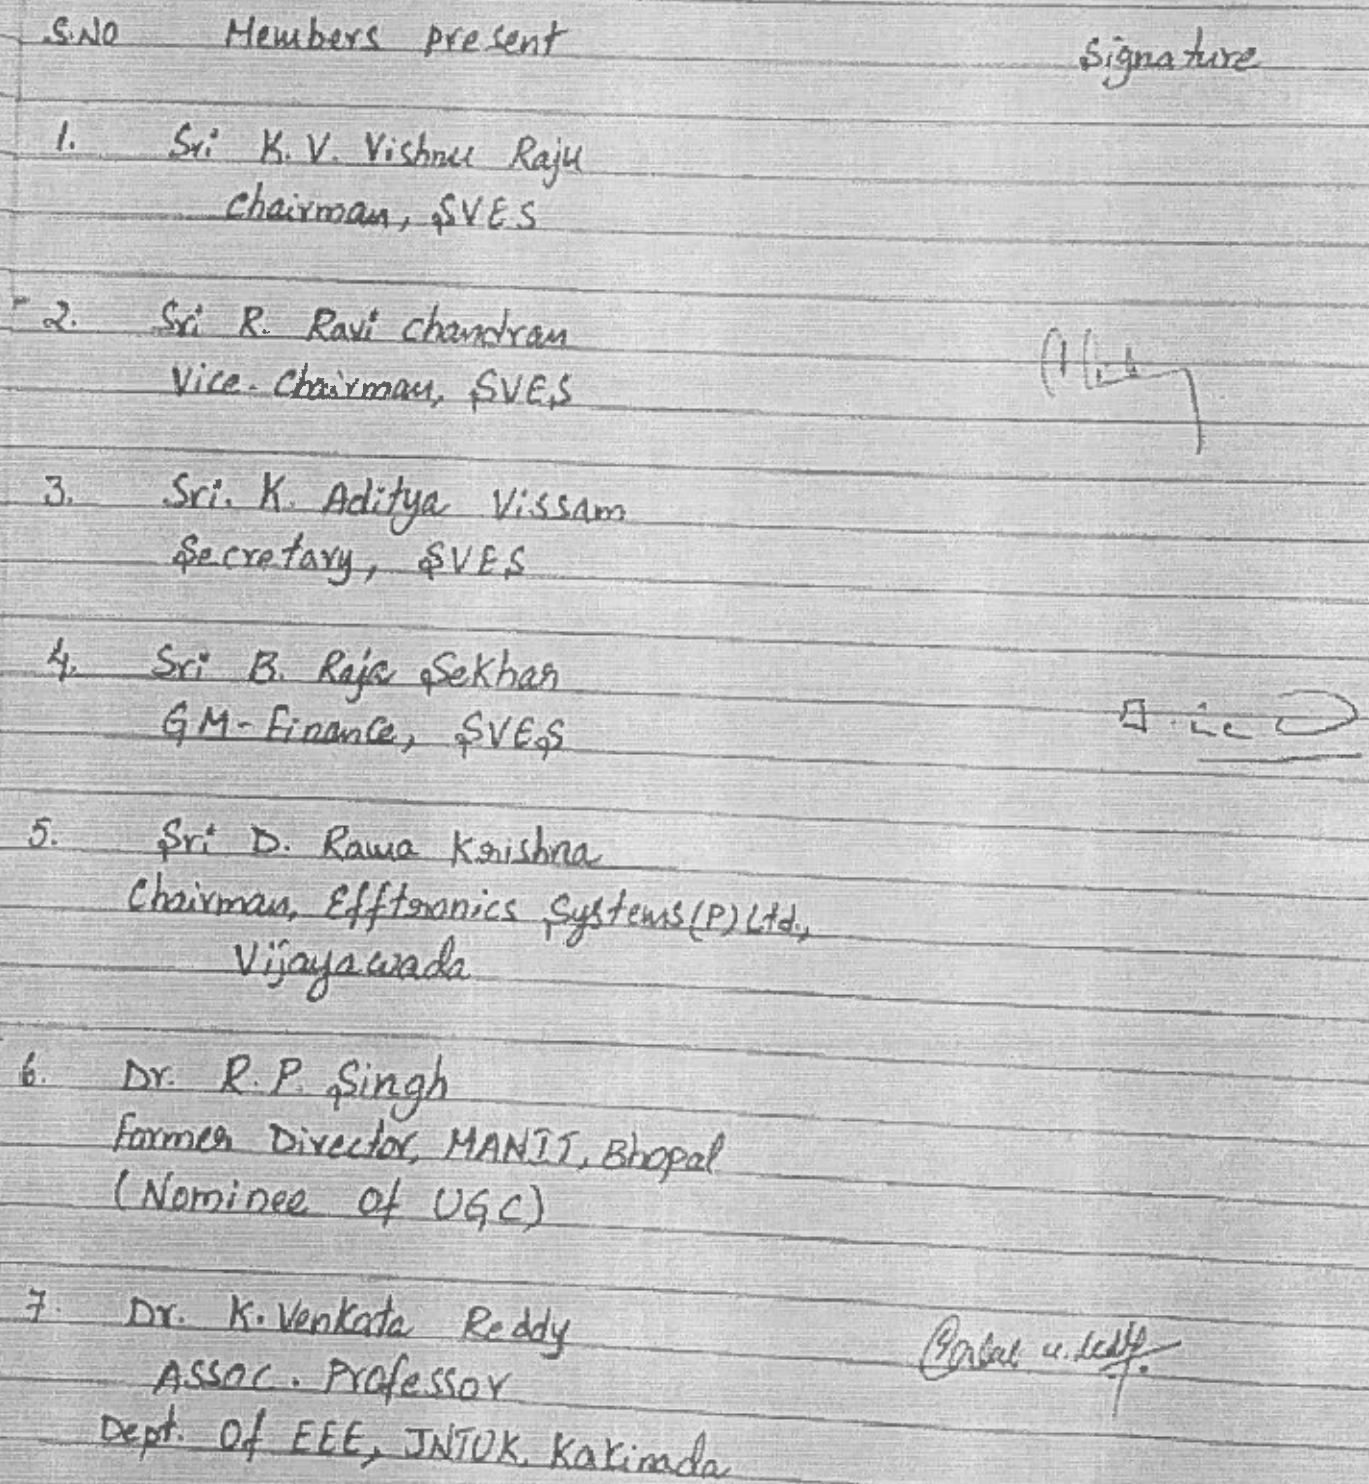 S.NO Members present Signature
1. Sri K. V. Vishnu Raju
Chairman, SVES
2. Sri R. Ravi chandran
Vice-Chairman, SVES
3. Sri. K. Aditya Vissam
Secretary, SVES
4. Sri B. Raja Sekhar
GM-Finance, SVES
5. Sri D. Rama Krishna
Chairman, Efftronics Systems(P) Ltd.,
Vijayawada
6. Dr. R. P. Singh
Former Director, MANIT, Bhopal
(Nominee of UGC)
7. Dr. K. Venkata Reddy
Assoc. Professor
Dept. Of EEE, JNTUK, Kakinada